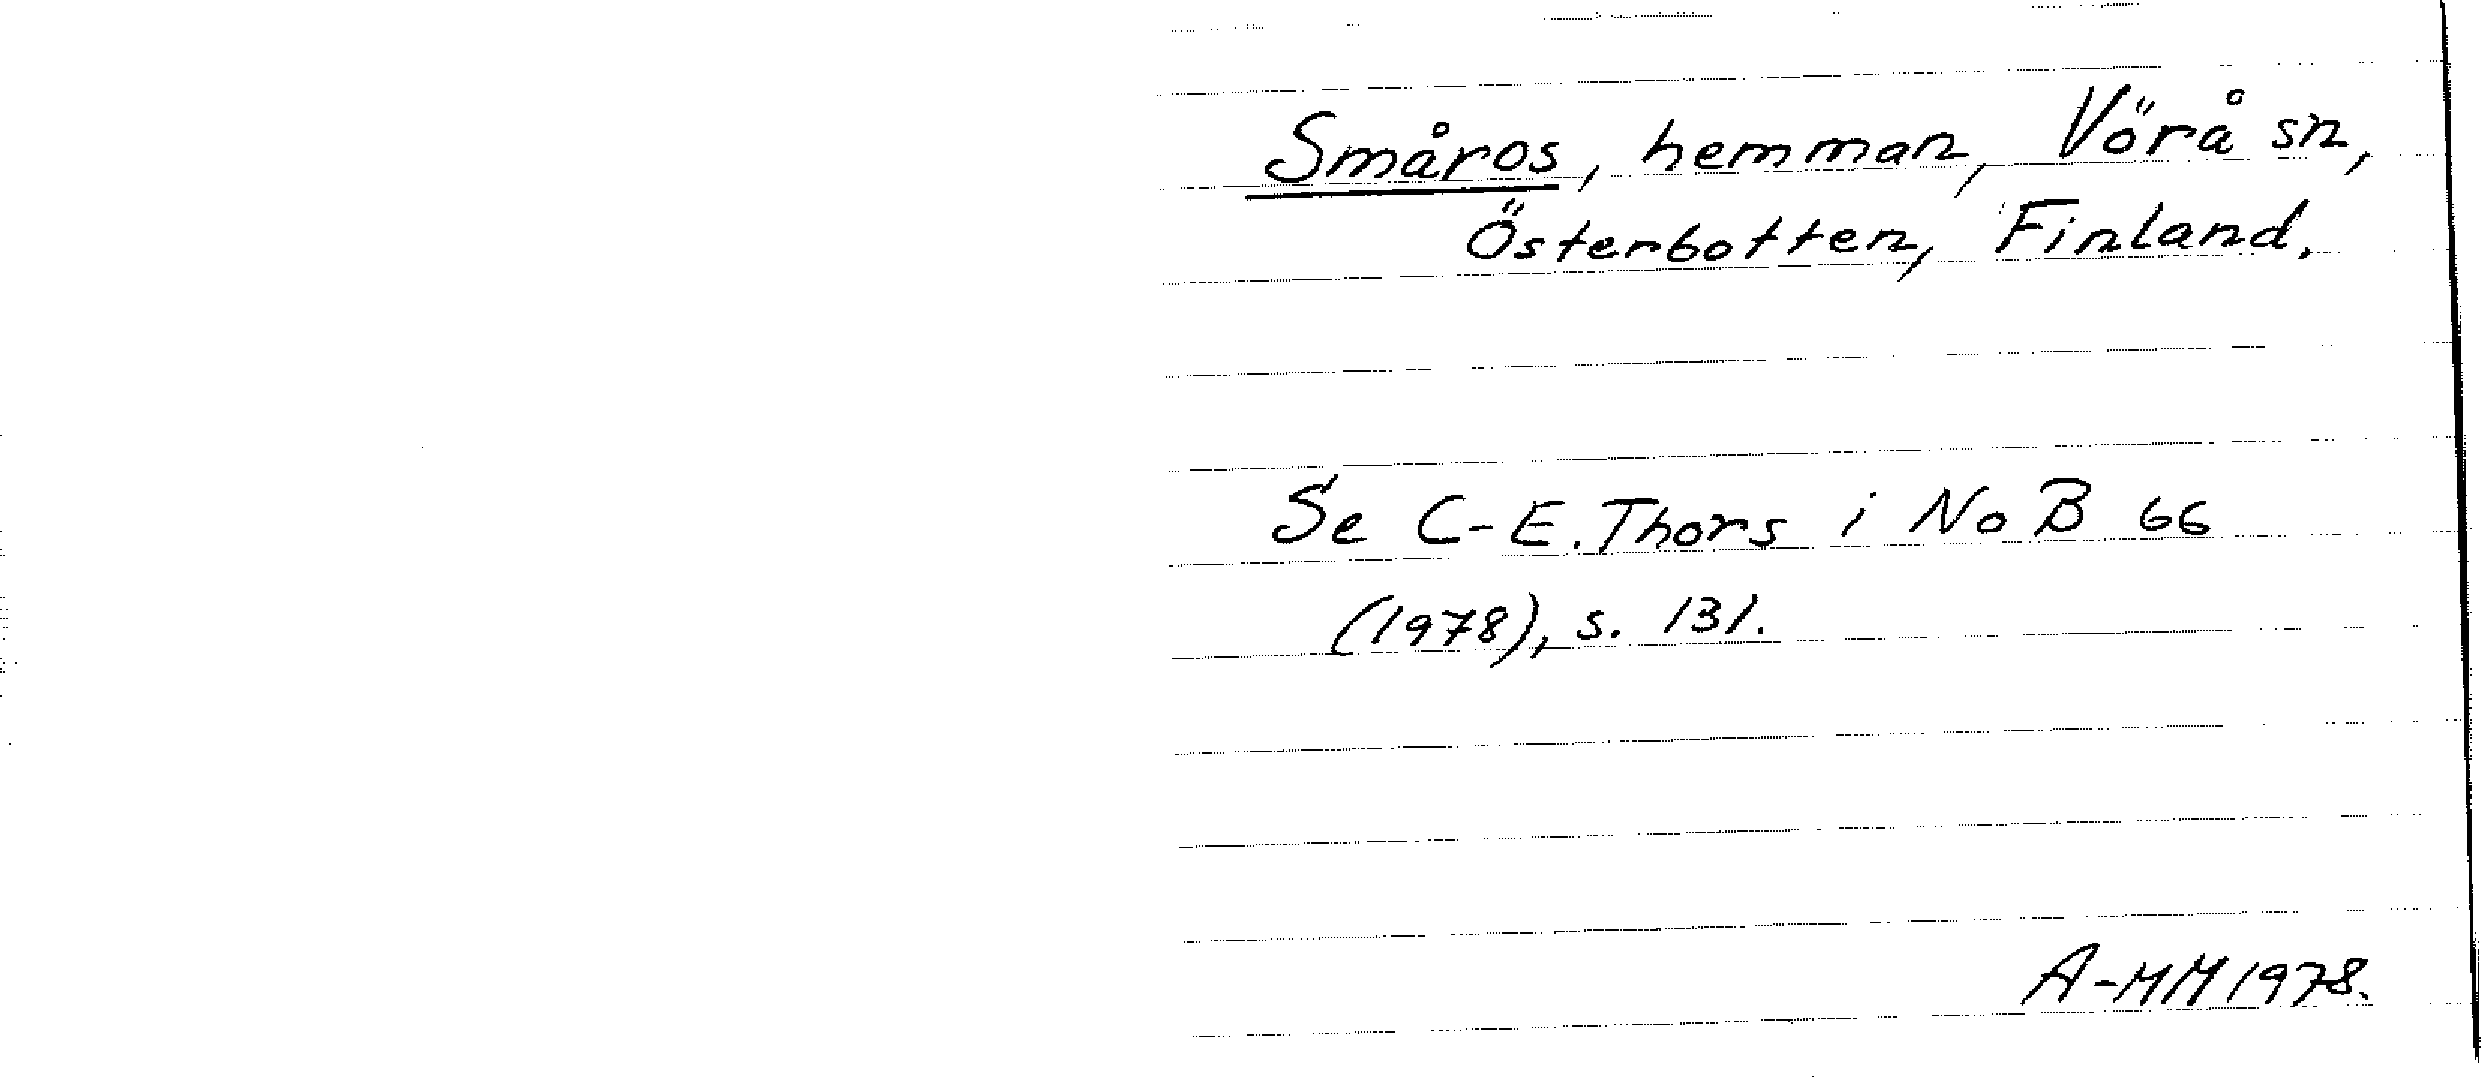 Småros, hemman, Vörå sn,
Österbotten, Finland.
Se C-E. Thors i NoB 66
(1978), s. 131.
A-MM 1978.